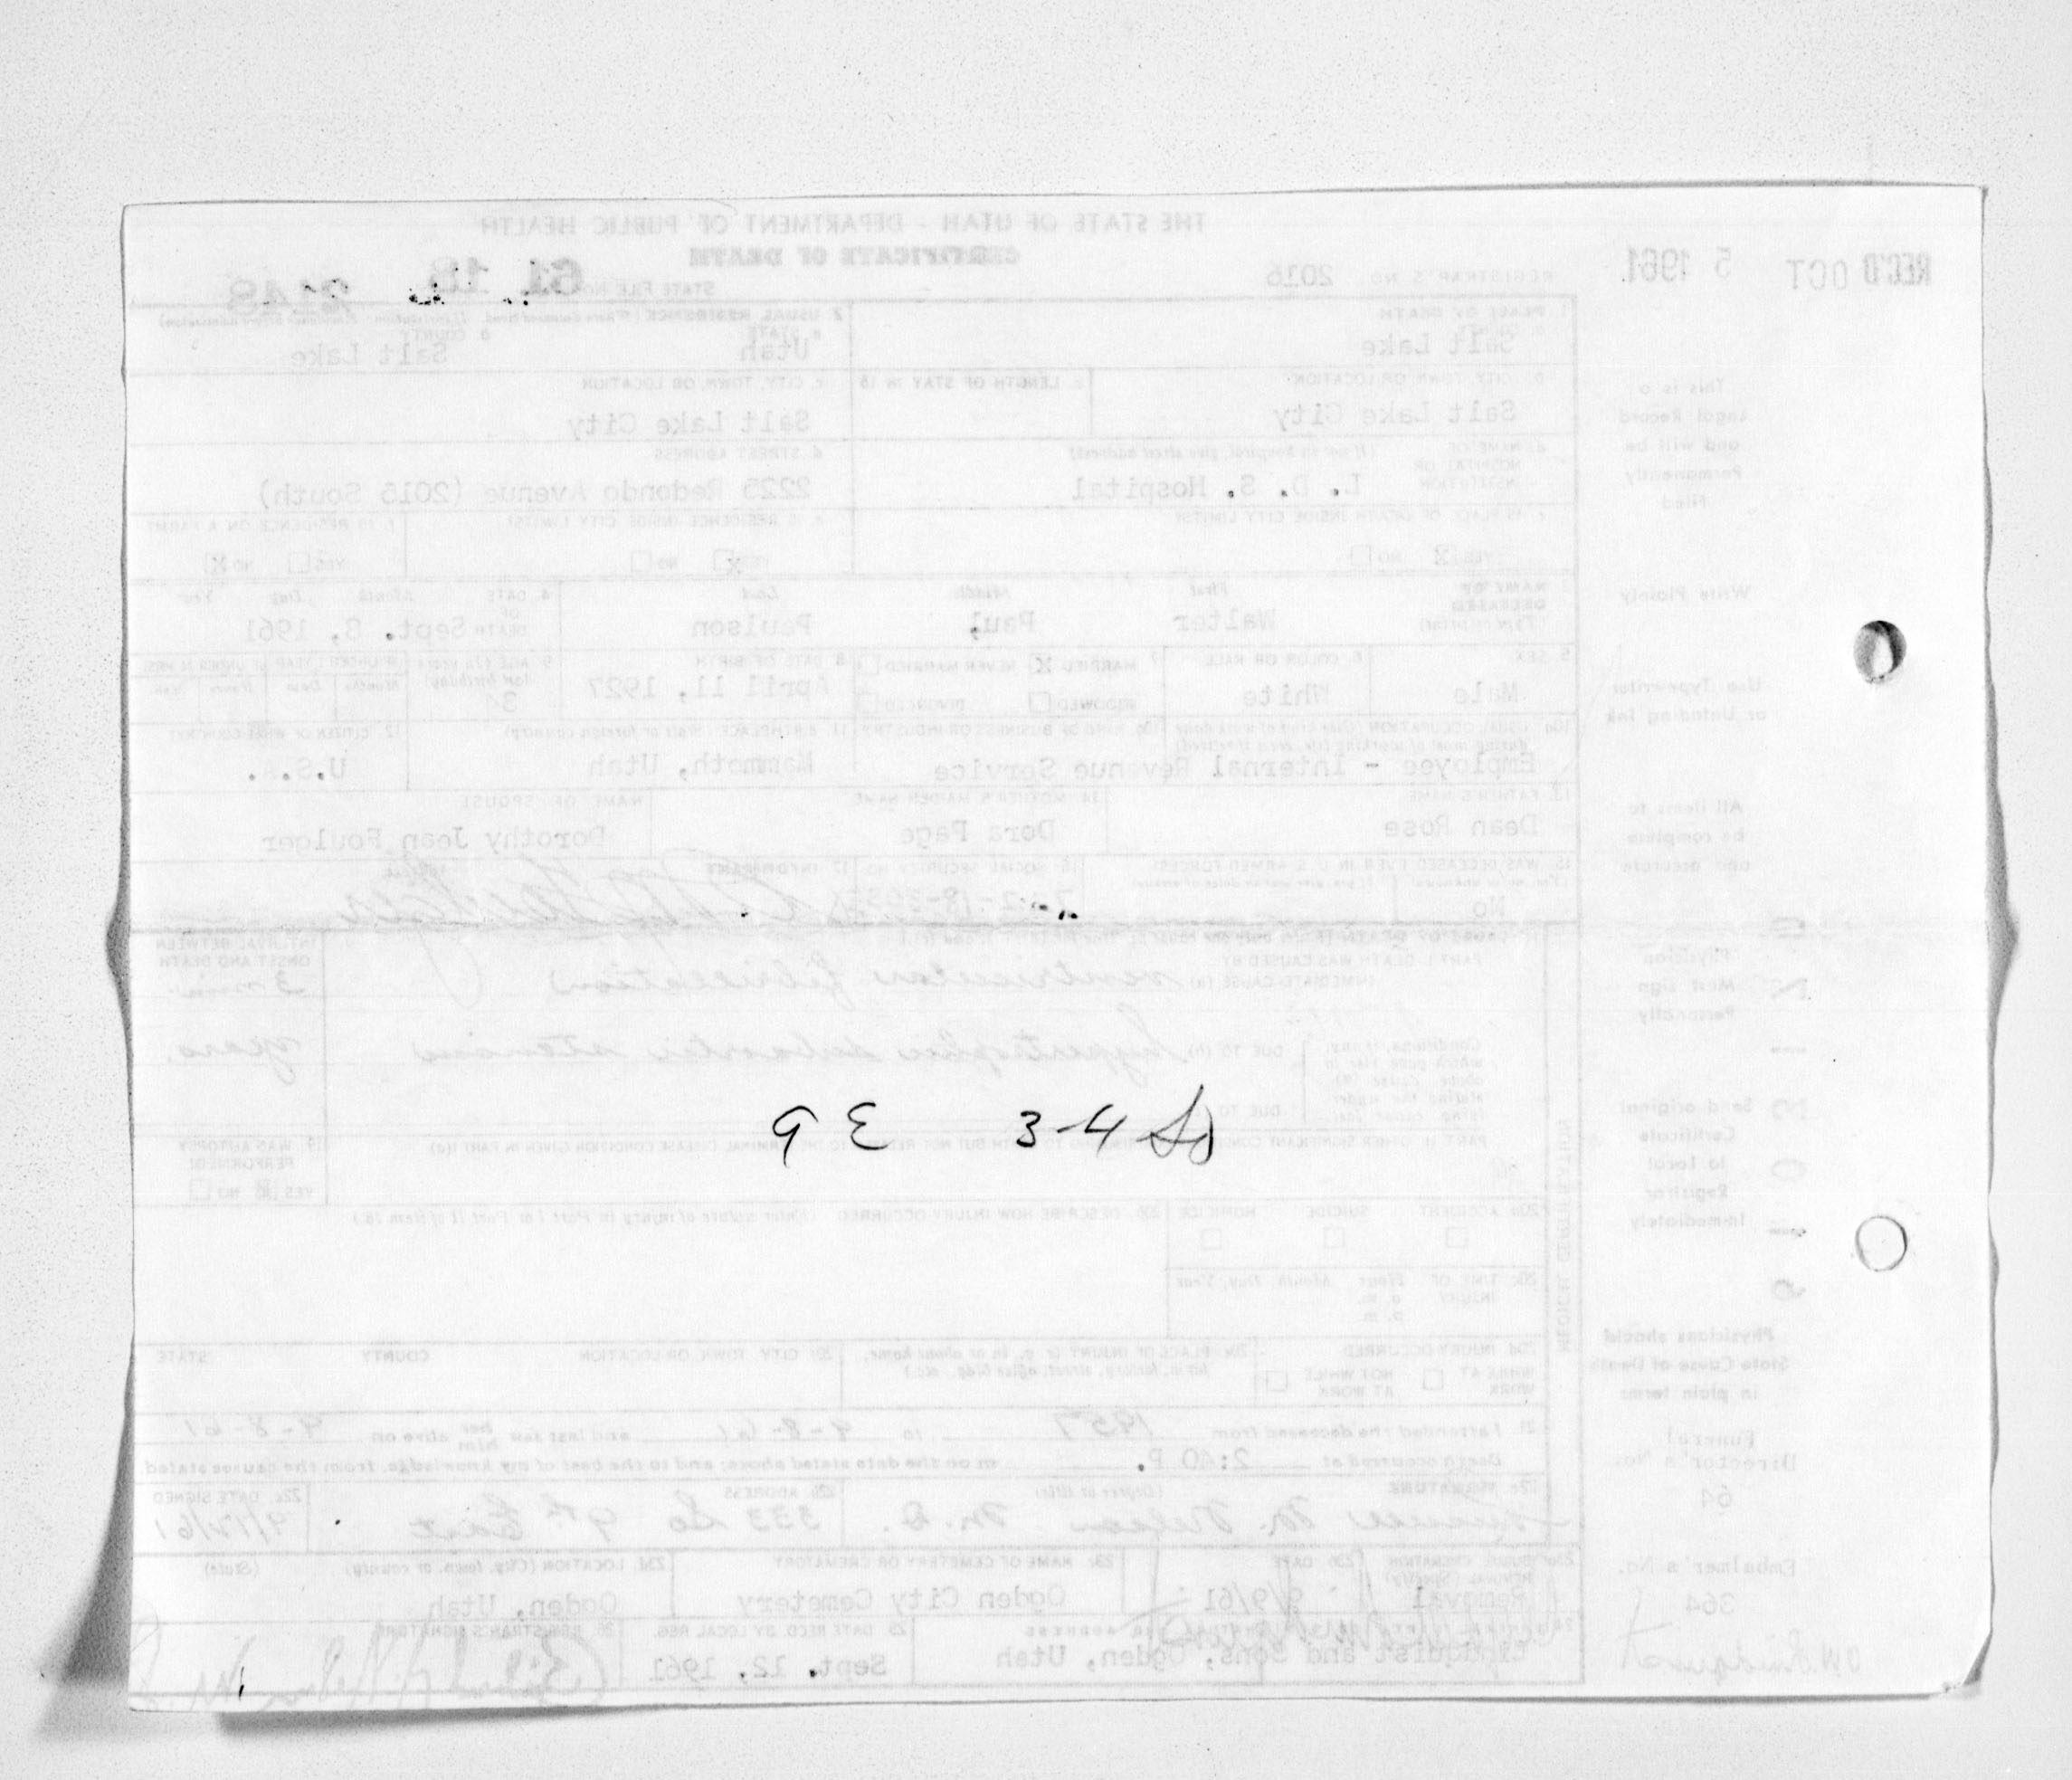 THE STATE OF UTAH - DEPARTMENT OF PUBLIC HEALTH
CERTIFICATE OF DEATH
REC'D OCT 5 1961
REGISTRAR'S NO. 2016
STATE FILE NO. 61 18 2148
1. PLACE OF DEATH
a. COUNTY
Salt Lake
2. USUAL RESIDENCE
a. STATE
Utah
b. COUNTY
Salt Lake
b. CITY, TOWN, OR LOCATION
Salt Lake City
c. LENGTH OF STAY IN 1b
c. CITY, TOWN, OR LOCATION
Salt Lake City
d. NAME OF HOSPITAL OR INSTITUTION (If not in hospital, give street address)
L. D. S. Hospital
d. STREET ADDRESS
2225 Redondo Avenue (2015 South)
e. IS PLACE OF DEATH INSIDE CITY LIMITS?
YES X NO
e. IS RESIDENCE INSIDE CITY LIMITS?
YES X NO
f. IS RESIDENCE ON A FARM?
YES NO X
NAME OF DECEASED
First Middle Last
Walter Paul Paulson
4. DATE OF DEATH Month Day Year
Sept. 8, 1961
5. SEX
Male
6. COLOR OR RACE
White
7. MARRIED X NEVER MARRIED
WIDOWED DIVORCED
8. DATE OF BIRTH
April 11, 1927
9. AGE (In years last birthday)
34
10a. USUAL OCCUPATION
Employee - Internal Revenue Service
10b. KIND OF BUSINESS OR INDUSTRY
11. BIRTHPLACE (State or foreign country)
Mammoth, Utah
12. CITIZEN OF WHAT COUNTRY?
U.S.A.
13. FATHER'S NAME
Dean Rose
14. MOTHER'S MAIDEN NAME
Dora Page
NAME OF SPOUSE
Dorothy Jean Foulger
15. WAS DECEASED EVER IN U.S. ARMED FORCES?
No
16. SOCIAL SECURITY NO.
17. INFORMANT
PART I. DEATH WAS CAUSED BY:
IMMEDIATE CAUSE (a) ventricular fibrillation
INTERVAL BETWEEN ONSET AND DEATH
3 min
DUE TO (b) hypertrophic subaortic stenosis
years.
DUE TO
9 E 3-4 So
19. WAS AUTOPSY PERFORMED?
YES X NO
20a. ACCIDENT SUICIDE HOMICIDE
20b. DESCRIBE HOW INJURY OCCURRED (Enter nature of injury in Part I or Part II of item 18.)
20c. TIME OF INJURY Hour Month, Day, Year
a. m.
p. m.
20d. INJURY OCCURRED
WHILE AT WORK NOT WHILE AT WORK
20e. PLACE OF INJURY (e. g., in or about home, farm, factory, street, office bldg., etc.)
20f. CITY, TOWN, OR LOCATION COUNTY STATE
21. I attended the deceased from 1957 to 9-8-61 and last saw her him alive on 9-8-61
Death occurred at 2:40 P. m on the date stated above; and to the best of my knowledge, from the causes stated.
22a. SIGNATURE (Degree or title)
Nelson M.D.
22b. ADDRESS
333 So 9th East
22c. DATE SIGNED
9/12/61
23a. BURIAL, CREMATION, REMOVAL (Specify)
Removal
23b. DATE
9/9/61
23c. NAME OF CEMETERY OR CREMATORY
Ogden City Cemetery
23d. LOCATION (City, town, or county) (State)
Ogden, Utah
ADDRESS
Lindquist and Sons, Ogden, Utah
25. DATE RECD. BY LOCAL REG.
Sept. 12, 1961
26. REGISTRAR'S SIGNATURE
This is a
Legal Record
and will be
Permanently
Filed
Write Plainly
Use Typewriter
or Unfading Ink
All items to
be complete
and accurate
Physician
Must sign
Personally
Send original
Certificate
to Local
Registrar
Immediately
Physicians should
State Cause of Death
in plain terms
Funeral
Director's No.
64
Embalmer's No.
364
MEDICAL CERTIFICATION